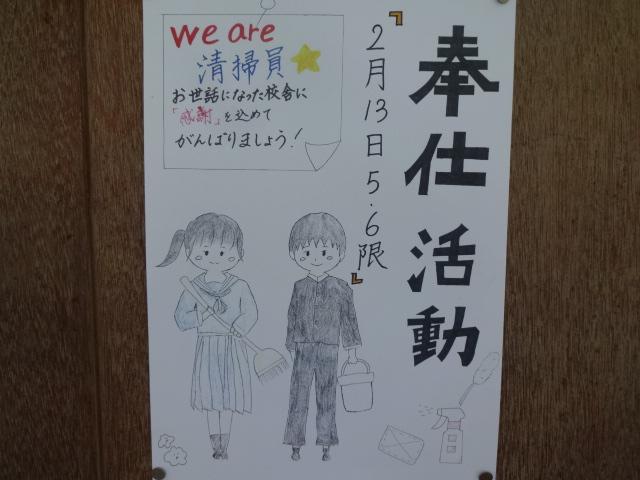 奉仕活動
『2月13日5・6限』
we are
清掃員
お世話になった校舎に
「感謝」を込めて
がんばりましょう！